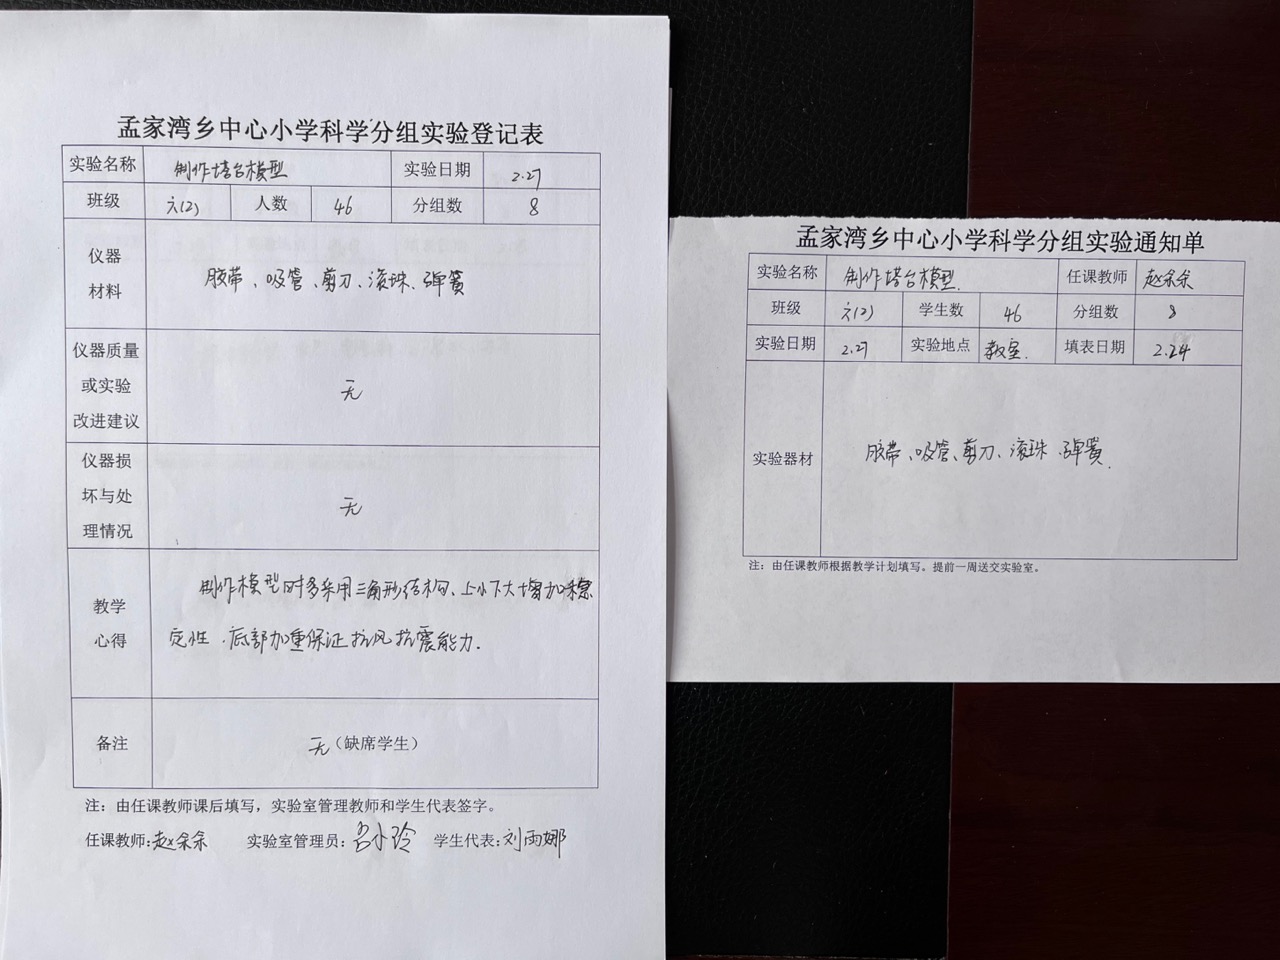 孟家湾乡中心小学科学分组实验登记表
实验名称 制作塔台模型 实验日期 2.27
班级 六(2) 人数 46 分组数 8
仪器
材料
胶带、吸管、剪刀、滚珠、弹簧
仪器质量
或实验
改进建议
无
仪器损
坏与处
理情况
无
教学
心得
制作模型时多采用三角形结构、上小下大增加稳
定性、底部加重保证抗风抗震能力.
备注 无(缺席学生)
注：由任课教师课后填写，实验室管理教师和学生代表签字。
任课教师:赵余余 实验室管理员:吕小玲 学生代表:刘雨娜
孟家湾乡中心小学科学分组实验通知单
实验名称 制作塔台模型. 任课教师 赵余余
班级 六(2) 学生数 46 分组数 8
实验日期 2.27 实验地点 教室. 填表日期 2.24
实验器材 胶带、吸管、剪刀、滚珠、弹簧.
注：由任课教师根据教学计划填写。提前一周送交实验室。